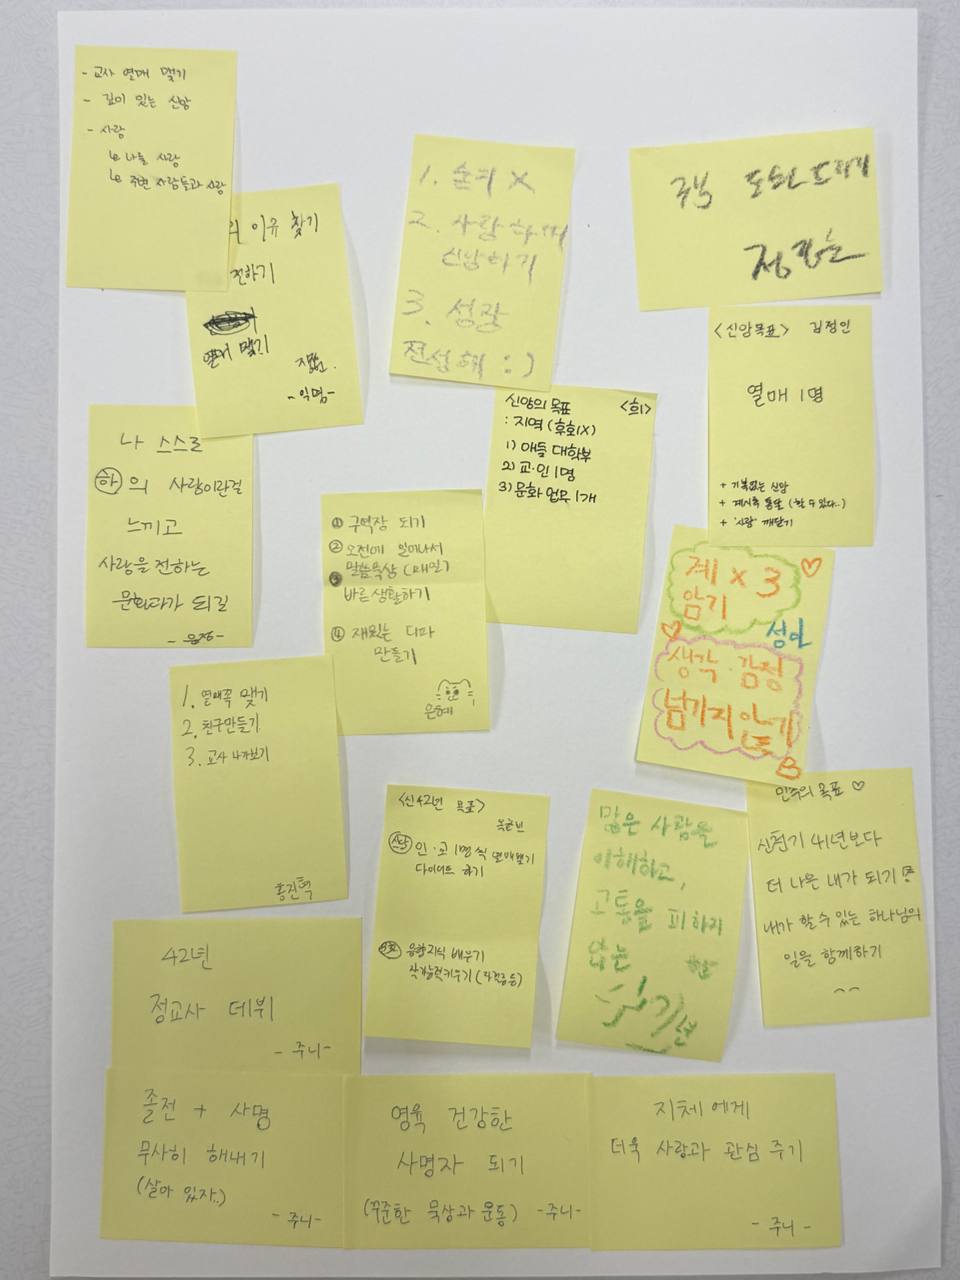 - 교사 열매 맺기
- 깊이 있는 신앙
- 사랑
↳ 나를 사랑
↳ 주변 사람들과 사랑
의 이유 찾기
전하기
열매 맺기
-익명-
1. 순리 X
2. 사랑하며
신앙하기
3. 성장
전성해 :)
도와드리기
<신앙목표> 김정인
열매 1명
+ 기복없는 신앙
+ 계시록 통달 (할 수 있다..)
+ '사랑' 깨닫기
신앙의 목표 <희>
: 지역 (후회X)
1) 애들 대학부
2) 교·인 1명
3) 문화 업무 1개
나 스스로
하의 사랑이란걸
느끼고
사랑을 전하는
문화과가 되길
- 유정 -
① 구역장 되기
② 오전에 일어나서
말씀묵상 (매일)
③ 바른생활하기
④ 재밌는 디파
만들기
은혜
계 x 3
암기
성아
생각·감정
넘기지 않기
1. 열매꼭 맺기
2. 친구만들기
3. 교사 나가보기
홍건혁
<신42년 목표>
인·교 1명씩 열매맺기
다이어트 하기
융합지식 배우기
(자격증 등)
많은 사람을
이해하고,
고통을 피하지
않는
민주의 목표 ♡
신천기 41년보다
더 나은 내가 되기
내가 할 수 있는 하나님의
일을 함께하기
^^
42년
정교사 데뷔
- 주니 -
졸전 + 사명
무사히 해내기
(살아 있자..)
- 주니 -
영육 건강한
사명자 되기
(꾸준한 묵상과 운동) - 주니 -
지체에게
더욱 사랑과 관심 주기
- 주니 -